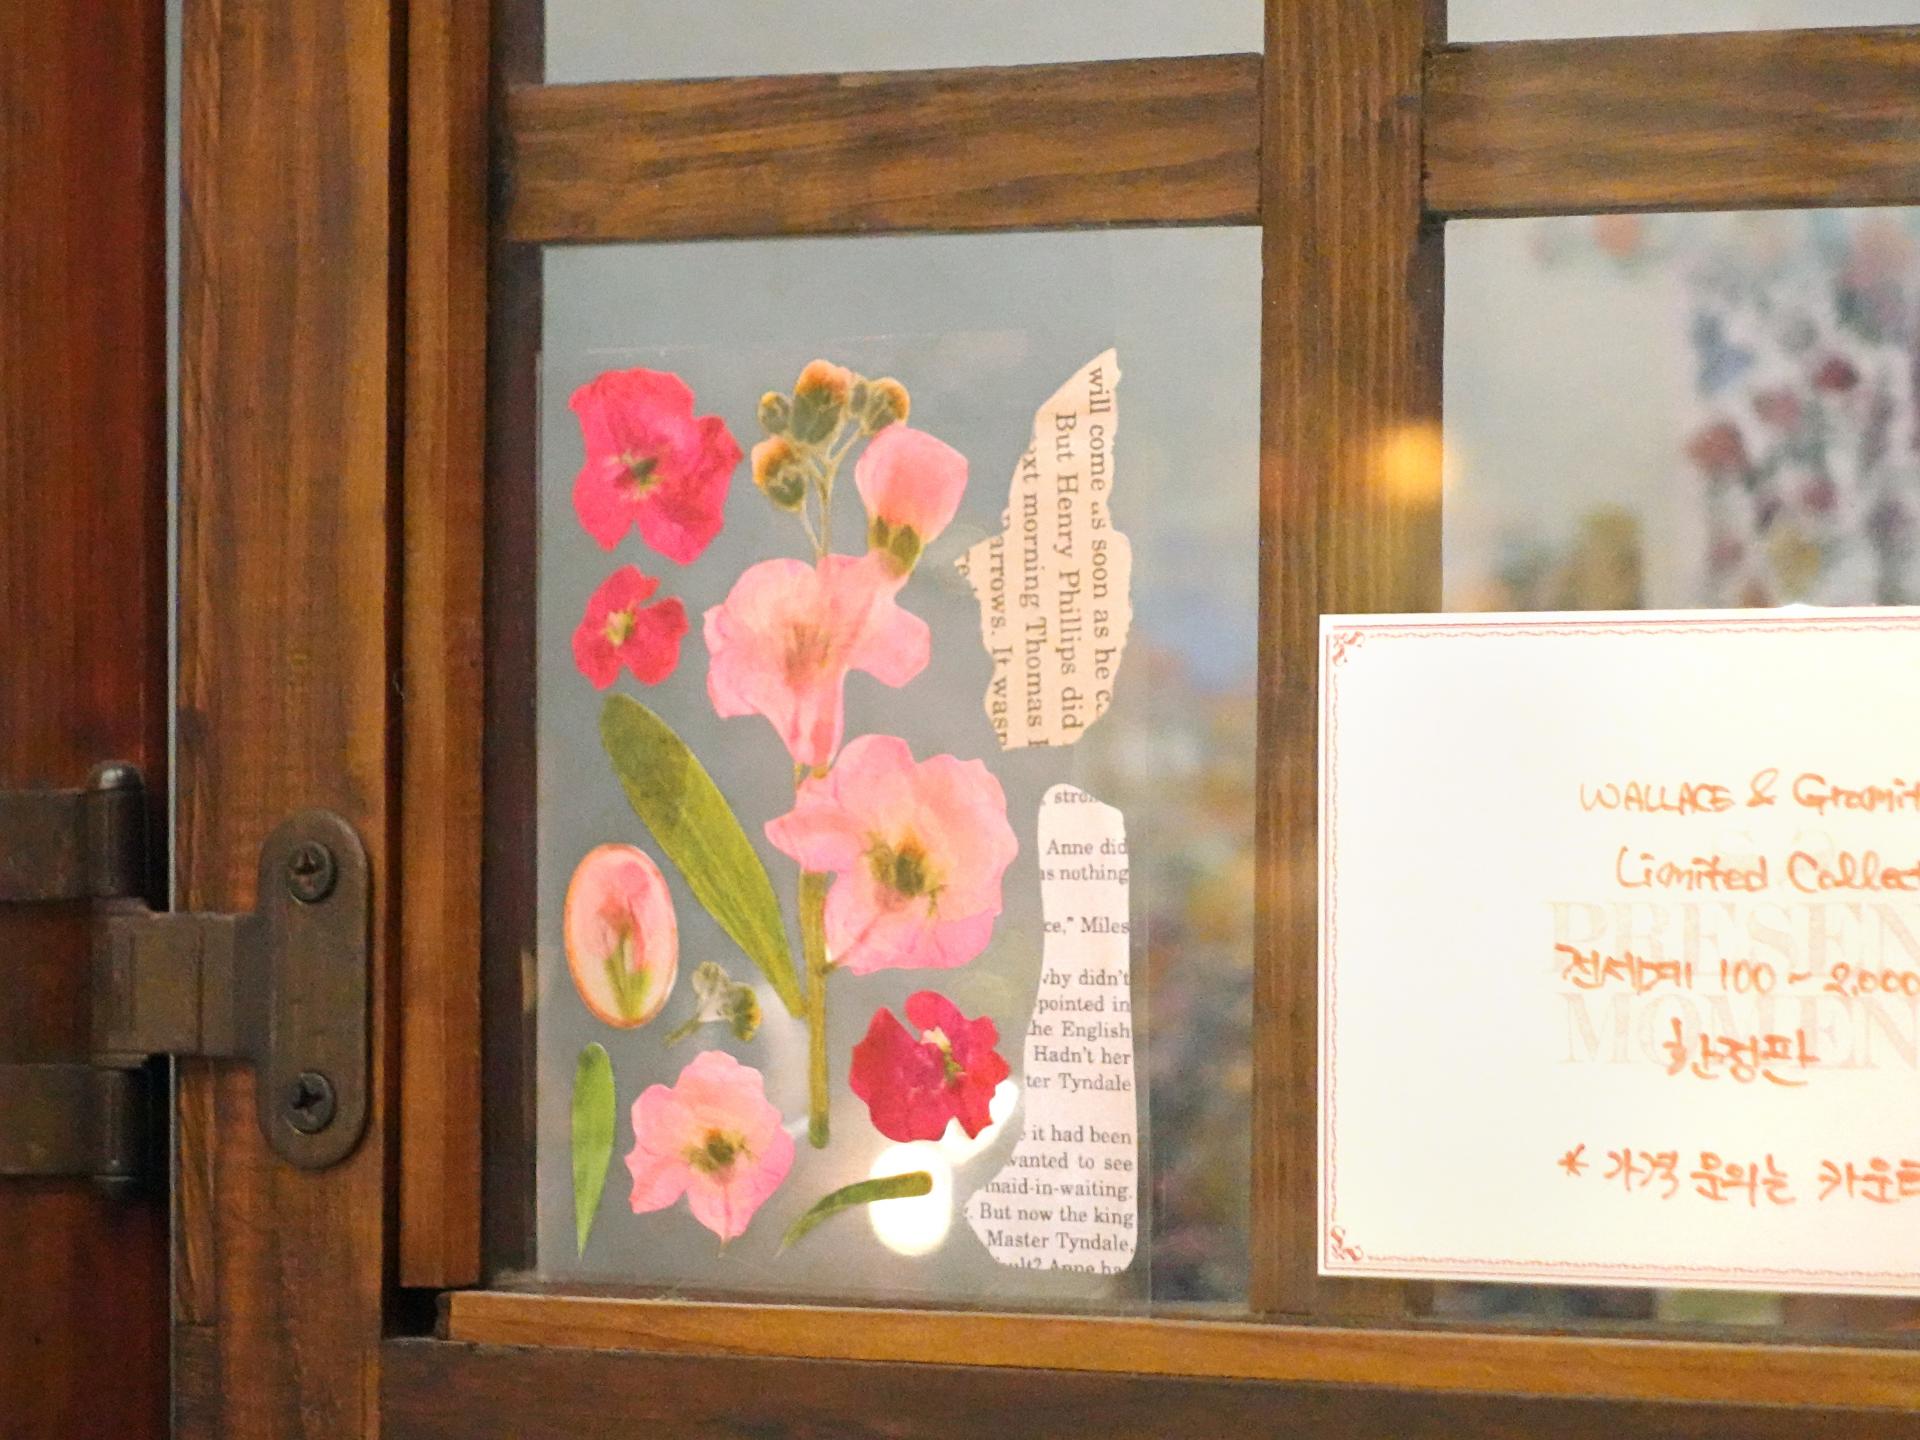 will come as soon as he
But Henry Phillips did
morning Thomas
arrows. It was
Anne did
nothing
ce," Miles
why didn't
pointed in
the English
Hadn't her
ter Tyndale
it had been
wanted to see
maid-in-waiting.
. But now the king
Master Tyndale,
Anne ha
WALLACE & Gromit
Limited Collect
PRESEN
전세계 100 ~ 2,000
MOMEN
한정판
* 가격 문의는 카운터